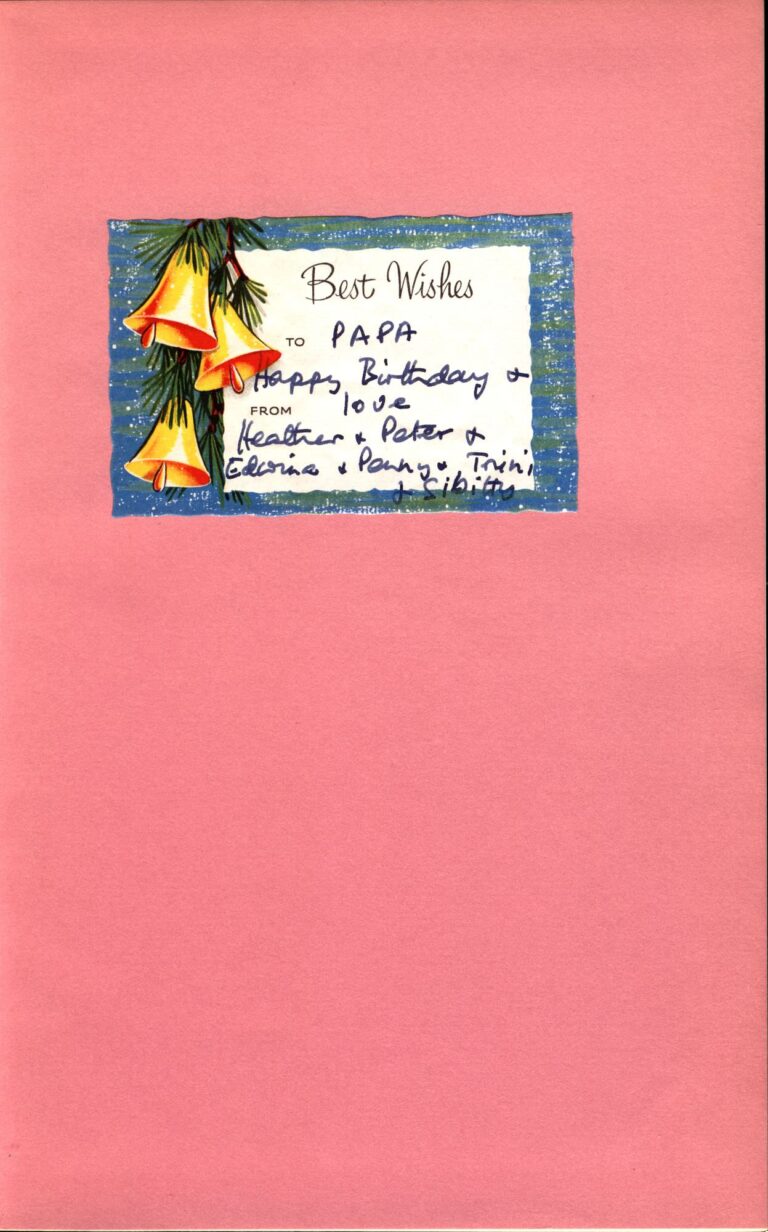 Best Wishes
TO PAPA
Happy Birthday &
love
FROM
Heather & Peter &
Edwina & Penny & Trini
&